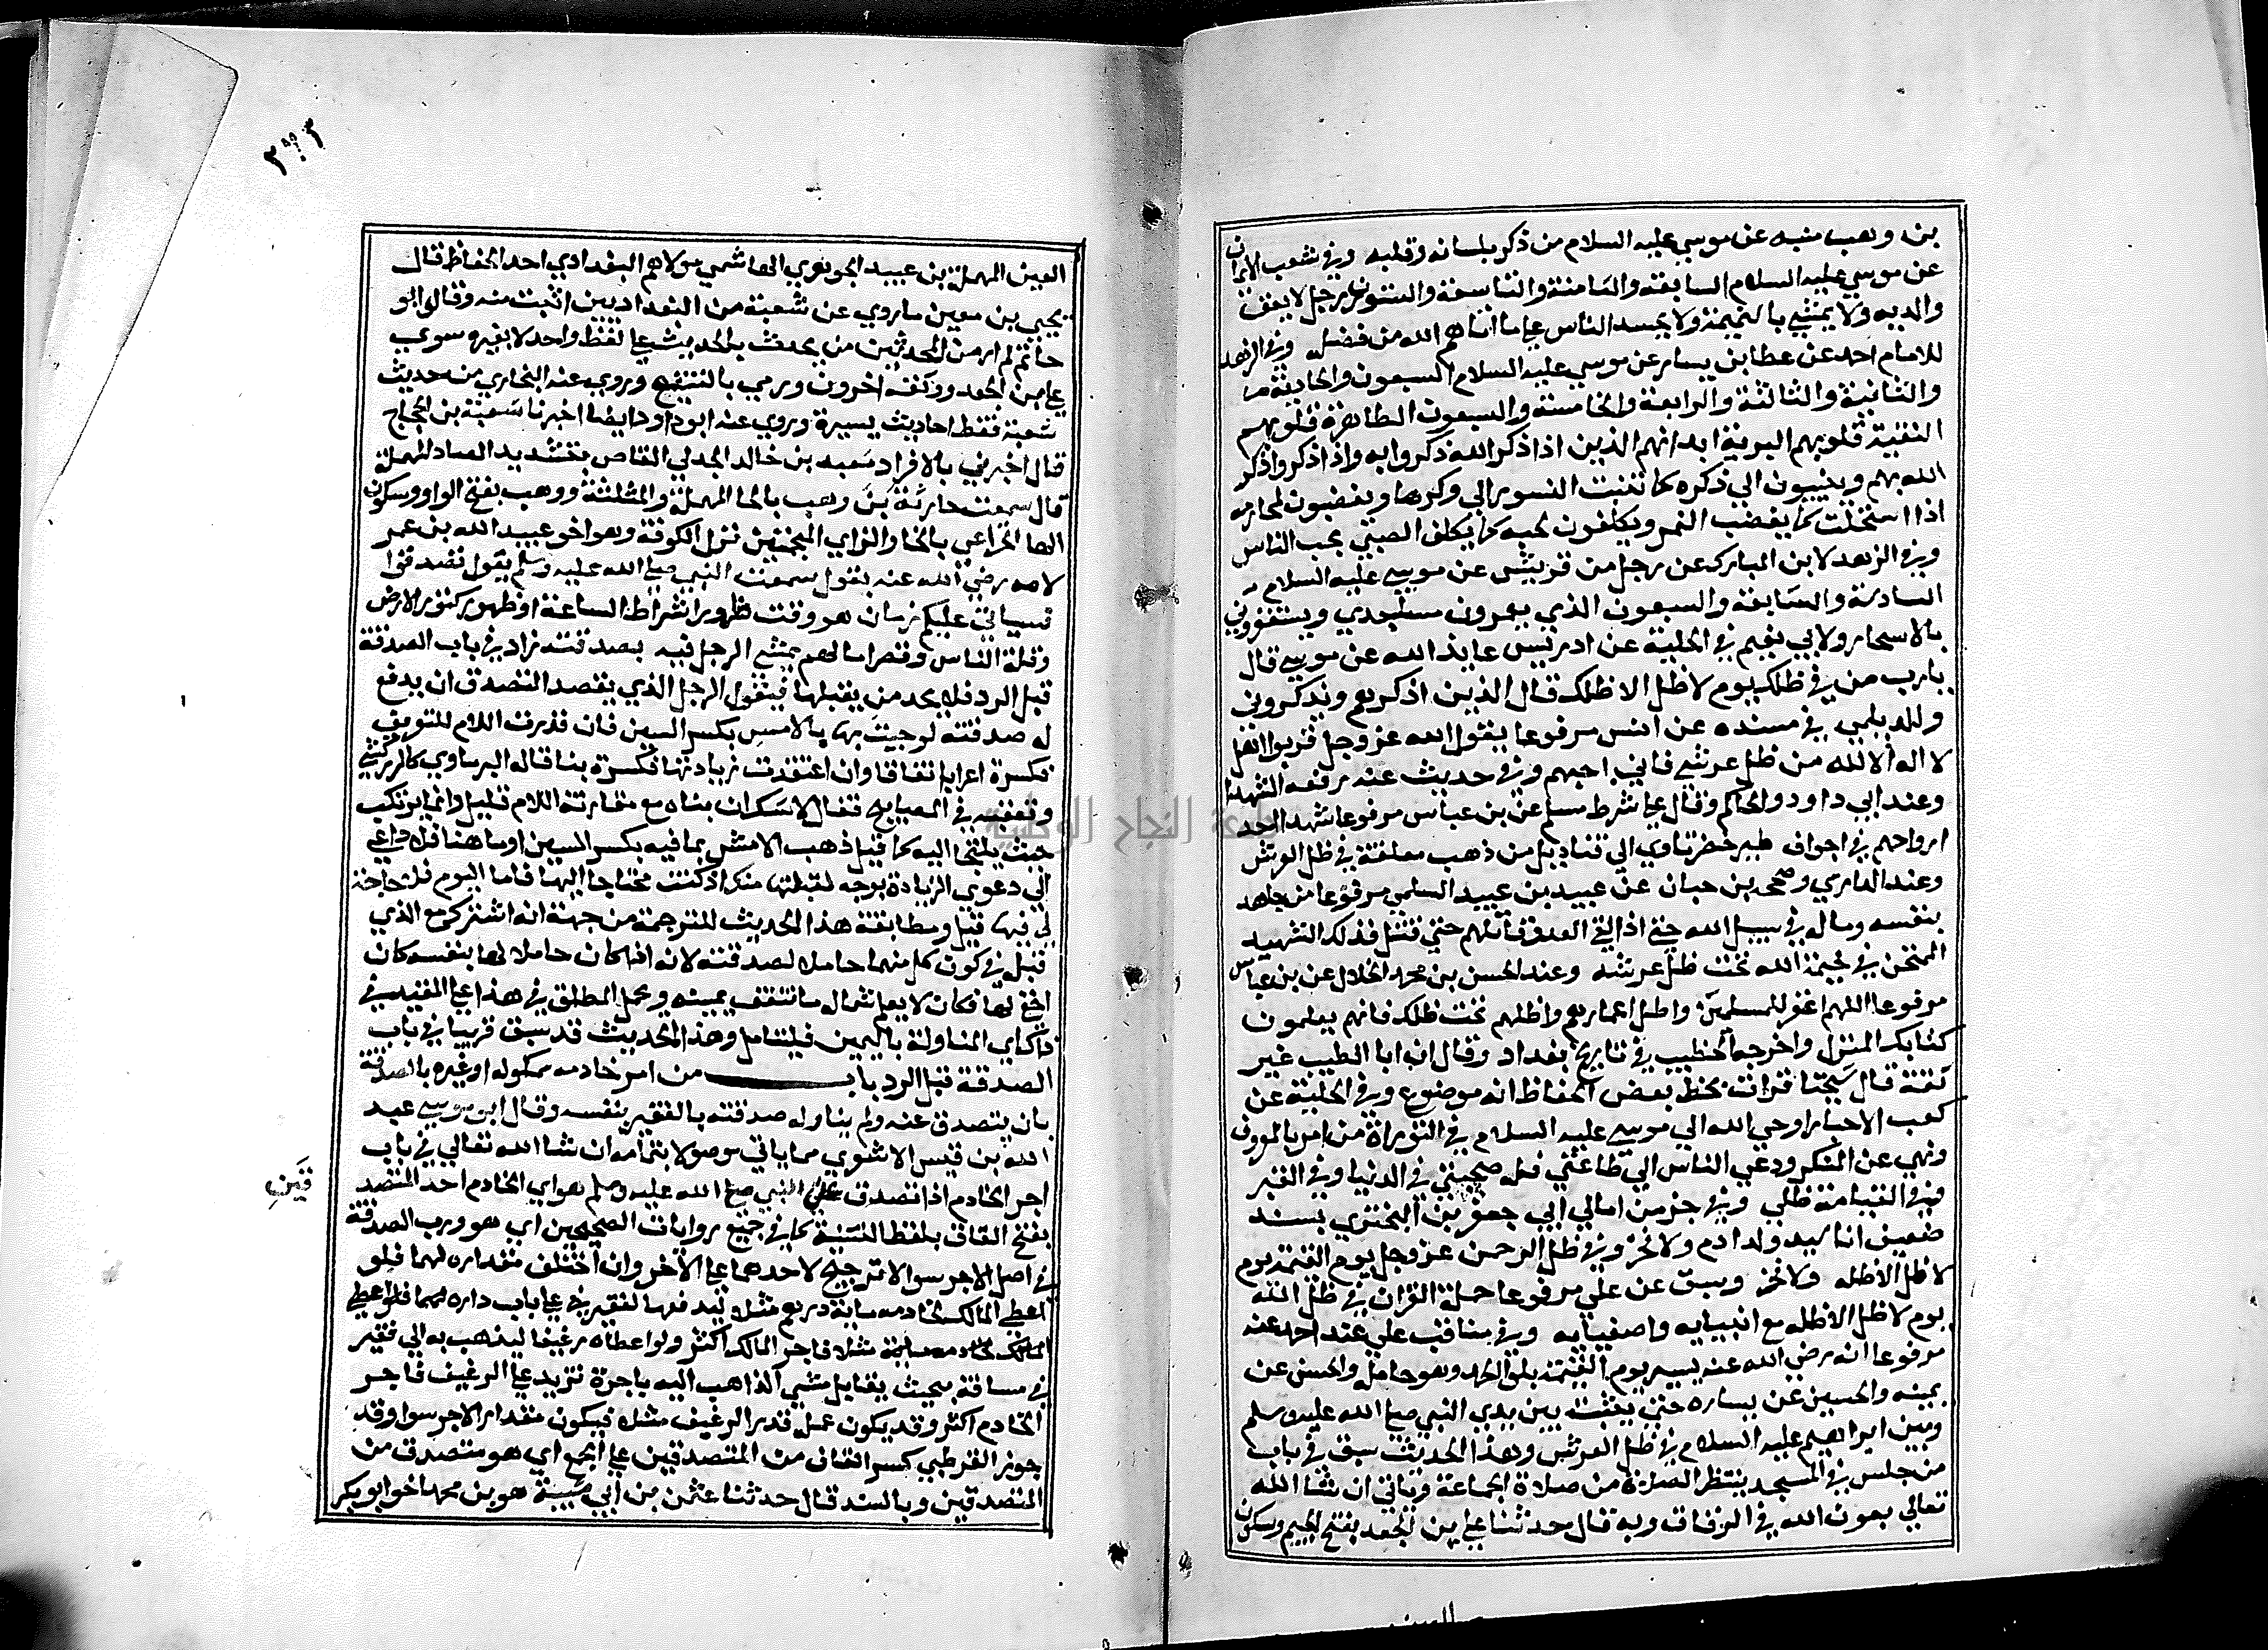 بن وهب منبه عن موسي عليه السلام من ذكر بلسانه وقلبه وفي شعب الايمان
عن موسي عليه السلام السابعة والثامنة والتاسعة والستون رجل لا يعق
والديه ولا يمشي بالنميمة ولا يحسد الناس علي ما اتاهم الله من فضله وفي الزهد
للامام احمد عن عطا بن يسار عن موسي عليه السلام السبعون والحادية
والثانية والثالثة والرابعة والخامسة والسبعون الطاهرة قلوبهم
النقية قلوبهم البرية ابدانهم الذين اذا ذكر الله ذكروا به واذا ذكروا ذكر
الله بهم وينيبون الي ذكره كما تنيب النسور الي وكرها ويغضبون لمحارمه
اذا استحلت كما يغضب النمر ويكلفون بحبه كما يكلف الصبي بحب الناس
وفي الزهد لابن المبارك عن رجل من قريش عن موسي عليه السلام
السادسة والسابعة والسبعون الذي يعمرون مساجدي ويستغفروني
بالاسحار ولابي نعيم في الحلية عن ادريس عايذ الله عن موسي قال
يا رب من في ظلك يوم لا ظل الا ظلك قال الذين اذكرهم ويذكروني
وللديلمي في مسنده عن انس مرفوعا يقول الله عز وجل قربوا اهل
لا اله الا الله من ظل عرشي فاني احبهم وفي حديث عنه رفعه الشهدا
وعند ابي داود والحاكم وقال علي شرط مسلم عن بن عباس مرفوعا شهدا احد
ارواحهم في اجواف طير خضر تاوي الي قناديل من ذهب معلقة في ظل العرش
وعند الدارمي وصححه بن حبان عن عبيد بن عبيد السلمي مرفوعا من جاهد
بنفسه وماله في سبيل الله حتي اذا لقي العدو قاتلهم حتي قتل فذلك الشهيد
الممتحن في خيمة الله تحت ظل عرشه وعند الحسن بن محمد الخلال عن بن عباس
مرفوعا اللهم اغفر للمسلمين واطل اعمارهم واظلهم تحت ظلك فانهم يعلمون
كتابك المنزل واخرجه الخطيب في تاريخ بغداد وقال ان ابا الطيب غير
ثقة قال شيخنا قرات بخط بعض الحفاظ انه موضوع وفي الحلية عن
كعب الاحبار اوحي الله الي موسي عليه السلام في التوراة من امر بالمعروف
ونهي عن المنكر ودعي الناس الي طاعتي فله صحبتي في الدنيا وفي القبر
وفي القيامة ظلي وفي جز من امالي ابي جعفر بن البختري بسند
ضعيف انا سيد ولد ادم ولا فخر وفي ظل الرحمن عز وجل يوم القيمة يوم
لا ظل الا ظله ولا فخر وسبق عن علي مرفوعا حملة القران في ظل الله
يوم لا ظل الا ظله مع انبيايه واصفيايه وفي مناقب علي عند احمد عنه
مرفوعا انه رضي الله عنه يسير يوم القيمة بلوا الحمد وهو حامله والحسن عن
يمينه والحسين عن يساره حتي يقف بين يدي النبي صلي الله عليه وسلم
وبين ابراهيم عليه السلام في ظل العرش وهذا الحديث سبق في باب
من جلس في المسجد ينتظر الصلاة من صلاة الجماعة وياتي ان شا الله
تعالي بعون الله في الرقاق وبه قال حدثنا علي بن الجعد بفتح الجيم وسكون
العين
٢٩٢
العين المهملة بن عبيد الجوهري الهاشمي مولاهم البغدادي احد الحفاظ قال
يحيي بن معين ما روي عن شعبة من البغداديين اثبت منه وقال ابو
حاتم لم ار من المحدثين من يحدث بالحديث علي لفظ واحد لا يغيره سوي
علي بن الجعد ووثقه اخرون ورمي بالتشيع وروي عنه البخاري من حديث
شعبة فقط احاديث يسيرة وروي عنه ابو داود ايضا اخبرنا شعبة بن الحجاج
قال اخبرني بالافراد معبد بن خالد الجدلي القاص بتشديد الصاد المهملة
قال سمعت حارثة بن وهب بالحا المهملة والمثلثة ووهب بفتح الواو وسكون
الها الخزاعي بالخا والزاي المعجمتين نزل الكوفة وهو اخو عبيد الله بن عمر
لامه رضي الله عنه يقول سمعت النبي صلي الله عليه وسلم يقول تصدقوا
فسياتي عليكم زمان هو وقت ظهور اشراط الساعة او ظهور كنوز الارض
وقلة الناس وقصر امالهم يمشي الرجل فيه بصدقته زاد في باب الصدقة
قبل الرد فلا يجد من يقبلها فيقول الرجل الذي يقصد التصدق ان يدفع
له صدقته لو جيت بها بالامس بكسر السين فان قدرت اللام للتعريف
فكسرة اعراب اتفاقا وان اعتقدت زيادتها فكسرة بنا قاله البرماوي كالزركشي
وتعقبه في المصابيح فقال لا شك ان بناه مع مقارنة اللام قليل وانما يرتكب
حيث يلتجا اليه كما قيل ذهب الامس بما فيه بكسر السين اوما هنا فلا داعي
الي دعوي الزيادة بوجه لقبلتها منك اذ كنت محتاجا اليها فاما اليوم فلا حاجة
لي فيها قيل ومطابقة هذا الحديث للترجمة من جهة انه اشترك مع الذي
قبله في كون كل منهما حاملا لصدقته لانه اذا كان حاملا لها بنفسه كان
اخفي لها فكان لا يعلم شماله ما تنفق يمينه ويحمل المطلق في هذا علي المقيد في
ذاك اي المناولة باليمين فليتامل وهذا الحديث قد سبق قريبا في باب
الصدقة قبل الرد باب من امر خادمه مملوكه او غيره بالصدقة
بان يتصدق عنه ولم يناول صدقته بالفقير بنفسه وقال ابو موسي عبد
الله بن قيس الاشعري مما ياتي موصولا بتمامه ان شا الله تعالي في باب
اجر الخادم اذا تصدق عن النبي صلي الله عليه وسلم هو اي الخادم احد المتصد
قين
بفتح القاف بلفظ التثنية كما في جميع روايات الصحيحين اي هو ورب الصدقة
في اصل الاجر سوا لا ترجيح لاحدهما علي الاخر وان اختلف مقداره لهما فلو
اعطي المالك لخادمه ماية درهم مثلا ليدفعها لفقير علي باب داره
فاجر المالك اكثر ولو اعطاه رغيفا ليذهب به الي فقير
في مسافة بحيث يقابل مشي الذاهب اليه باجرة تزيد علي الرغيف فاجر
الخادم اكثر وقد يكون عمله قدر الرغيف مثلا فيكون مقدار الاجر سوا وقد
جوز القرطبي كسر القاف من المتصدقين علي الجمع اي هو متصدق من
المتصدقين وبالسند قال حدثنا عثمن بن ابي شيبة هو بن محمد اخو ابو بكر